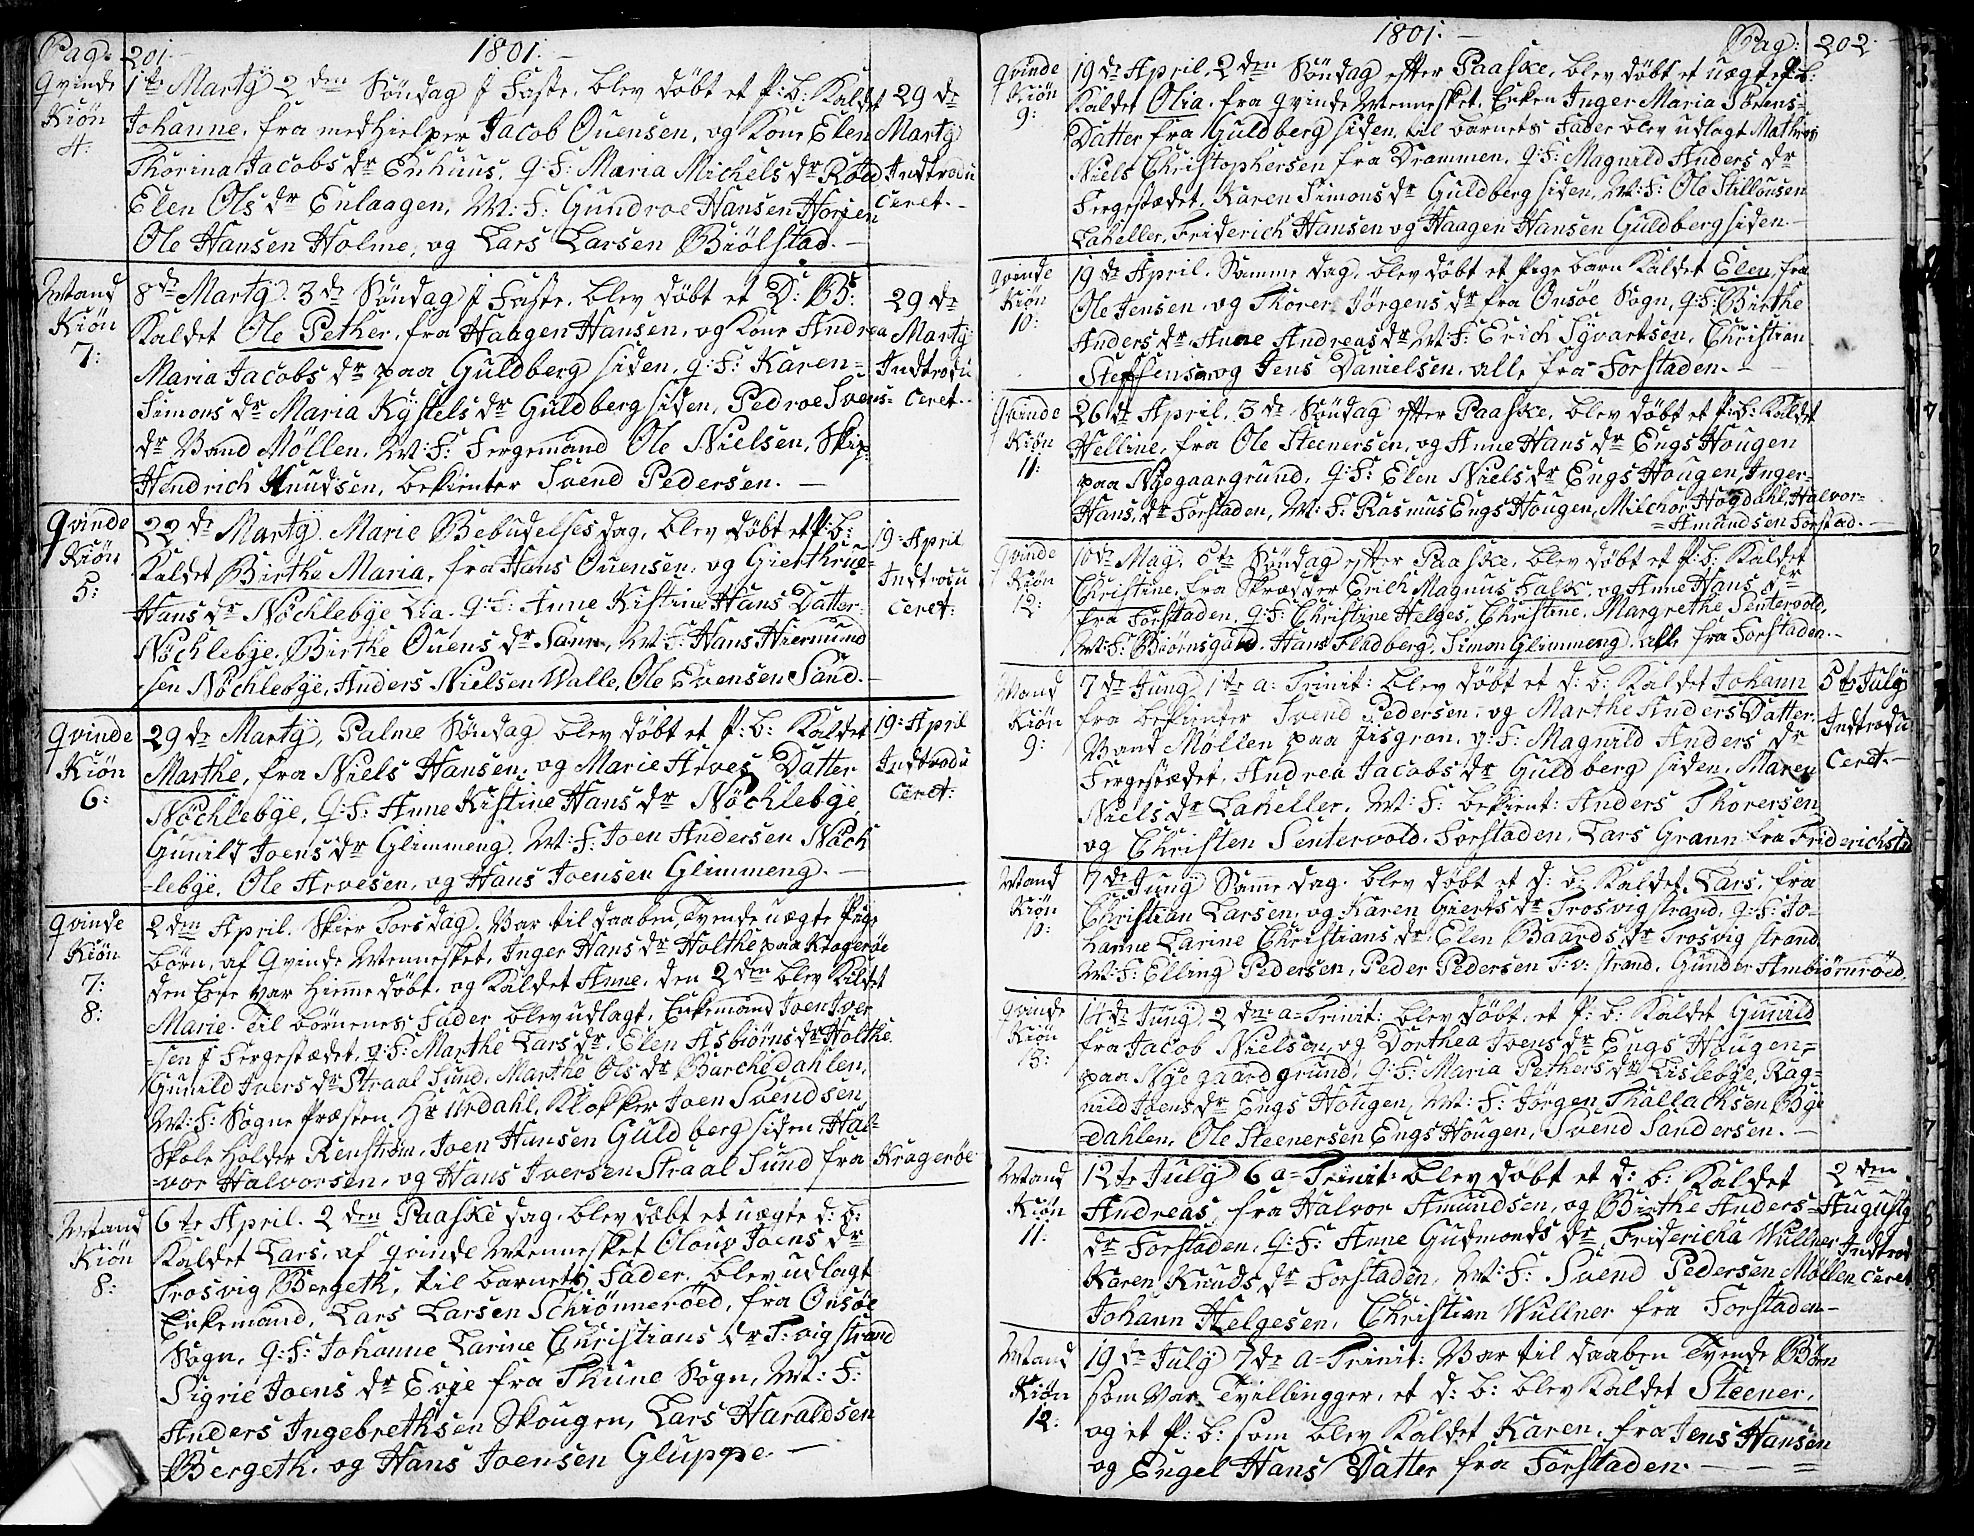 Pag: 201. 1801.
Qvinde Kiøn 4:
1te Martÿ 2den Søndag i Faste, blev døbt et P: b: Kaldet
Johanne, fra medhielper Jacob Ouensen, og Kone Elen
Thorina Jacobs dr Enhuus, Q: F: Maria Michels dr Røed
Elen Ols dr Enlaagen, M: F: Gundroe Hansen Horgen
Ole Hansen Holme, og Lars Larsen Biølstad.
29 de
Martÿ
Indtrodu
ceret.
Mand Kiøn 7:
8de Martÿ. 3de Søndag i Faste, blev døbt et D: B:
Kaldet Ole Pether, fra Haagen Hansen, og Kone Andrea
Maria Jacobs dr paa Guldberg siden, Q: F: Karen
Simons dr Maria Kystels dr Guldberg siden, Pedroe Svens-
dr Vand Møllen. M: F: Fergemand Ole Nielsen, Skip
Hendrich Knudsen, bekienter Svend Pedersen.
29 de
Martÿ
Indtrodu
ceret.
Qvinde Kiøn 5:
22de Martÿ Marie Bebudelses dag, blev døbt et P: b:
Kaldet Birthe Maria, fra Hans Ouensen, og Giethrue
Hans dr Nøchlebye Lia. Q: F: Anne Kistine Hans Datter
Nøchlebye, Birthe Ouens dr Sann, M: F: Hans Hiermund
sen Nøchlebye, Anders Nielsen Walle, Ole Evensen Sand.
19 April
Indtrodu
ceret:
Qvinde Kiøn 6:
29de Martÿ, Palme Søndag blev døbt et P: b: Kaldet
Marthe, fra Niels Hansen, og Marie Arves Datter
Nøchlebye, Q: F: Anne Kistine Hans dr Nøchlebye
Gunild Joens dr Glimmeng, M: F: Joen Andersen Nøch
lebye, Ole Arvesen, og Hans Joensen Glimmeng.
19 April
Indtrodu
ceret:
Qvinde Kiøn 7: 8:
2den April. Skier Torsdag, Var til daaben, Tvende uægte Pige
børn, af Qvinde Mennesket, Inger Hans dr Holthe paa Kragerøe
den Ene var hiemme døbt, og Kaldet Anne, den 2den blev Kaldet
Marie. Til børnenes Fader blev udlagt, Enkemand Joen Iver
sen i Fergestædet, Q: F: Marthe Lars dr, Elen Asbiørns dr Holthe
Gunild Ivers dr Straal Sund, Marthe Ols dr Barche Dahlen,
M: F: Sogne Præsten, Hr Urdahl, Klokker Joen Svendsen,
Skole Holder Renstrøm, Joen Hansen Guldberg siden, Hal-
vor Halvorsen, og Hans Iversen Straal Sund fra Kragerøe
Mand Kiøn 8:
6te April. 2den Paaske dag, blev døbt et uægte d: b:
Kaldet Lars, af qvinde Mennesket Olous Joens dr
Trosvig Bergeth, til barnets Fader, blev udlagt
Enkemand, Lars Larsen Schiønnerøed, fra Onsøe
Sogn, Q: F: Johanne Larine Christians dr T: vig strand
Sigrie Joens dr Evje fra Thune Sogn, M: F:
Anders Ingebrethsen Skougen, Lars Haraldsen
Bergeth, og Hans Joensen Gluppe.
1801. Pag: 202.
Qvinde Kiøn 9:
19de April, 2den Søndag efter Paaske, blev døbt et uægte P: b:
Kaldet Olia, fra qvinde Mennesket, Enken Inger Maria Sørens-
Datter fra Guldberg siden, til barnets Fader blev udlagt Mathias
Niels Christophersen fra Drammen, Q: F: Magnild Anders dr
Fergestædet, Karen Simons dr Guldberg siden, M: F: Ole Stillousen
Laheller, Friderich Hansen og Haagen Hansen Guldberg siden
Qvinde Kiøn 10:
19de April. Samme dag, blev døbt et Pige barn Kaldet Elen, fra
Ole Jensen, og Thorer Jørgens dr fra Onsøe Sogn, Q: F: Birthe
Anders dr Anne Andreas dr M: F: Erich Syvartsen, Christian
Steffensen og Jens Danielsen, alle fra Forstaden.
Qvinde Kiøn 11:
26de April, 3de Søndag efter Paaske, blev døbt et P: b: Kaldet
Helline, fra Ole Steenersen, og Anne Hans dr Engs Hougen
paa Nyegaargrund, Q: F: Elen Niels dr Engs Hougen, Inger
Hans dr Forstaden, M: F: Rasmus Engs Hougen, Milchor Høgdahl, Halvor
Amundsen Forstad.
Qvinde Kiøn 12:
10de May, 5te Søndag efter Paaske, blev døbt et P: b: Kaldet
Christine, fra Skrædder Erich Magnus Falk, og Anne Hans dr
fra Forstaden, Q: F: Christine Helges, Christine, Margrethe Sentervold,
M: F: Biørnsgaard, Hans Fladberg, Simon Glimmeng, alle fra Forstaden.
Mand Kiøn 9:
7de Juny, 1te a: Trinit: blev døbt et d: b: Kaldet Johann
fra bekienter Svend Pedersen, og Marthe Anders Datter
Vand Møllen paa Jisgron, q: F: Magnild Anders dr
Fergestædet, Andrea Jacobs dr Guldberg siden, Maren
Niels dr Laheller, M: F: bekient: Anders Thorersen
og Christen Sentervold, Forstaden, Lars Grann fra Friderichstd
5te July
Indtrodu
Ceret.
Mand Kiøn 10:
7de Juny Samme dag, blev døbt et d: b: Kaldet Lars, fra
Christian Larsen, og Karen Gierts dr Trosvig strand, Q: F: Jo-
hanne Larine Christians dr, Elen Baards dr Trosvig strand
M: F: Elling Pedersen, Peder Pedersen T: v: strand, Gunder Ambiørnrøed.
Qvinde Kiøn 13:
14de Juny, 2den a= Trinit: blev døbt, et P: b: Kaldet Gunild
fra Jacob Nielsen, og Dorthea Joens dr Engs Hougen,
paa Nye gaard grund, Q: F: Maria Pethers dr Lislebye, Rag-
nild Joens dr Engs Hougen, M: F: Jørgen Thallachsen Bye
Dahlen, Ole Steenersen Engs Hougen, Svend Sandersen.
Mand Kiøn 11:
12te July 6 a= Trinit: blev døbt et d: b: Kaldet
Andreas, fra Halvor Amundsen, og Birthe Anders=
dr Forstaden, Q: F: Anne Gudmonds dr, Fridericha Wullner
Karen Knuds dr Forstaden, M: F: Svend Pedersen Møllen
Johann Helgesen, Christian Wullner fra Forstaden
2den
Augusty
Indtrod
ceret
Mand Kiøn 12:
19de July 7de a= Trinit: Var til daaben Tvende Børn
som var Tvillingger, et d: b: blev Kaldet Steener,
og et P: b: som blev Kaldet Karen, fra Jens Hansen
og Engel Hans Datter fra Forstaden.